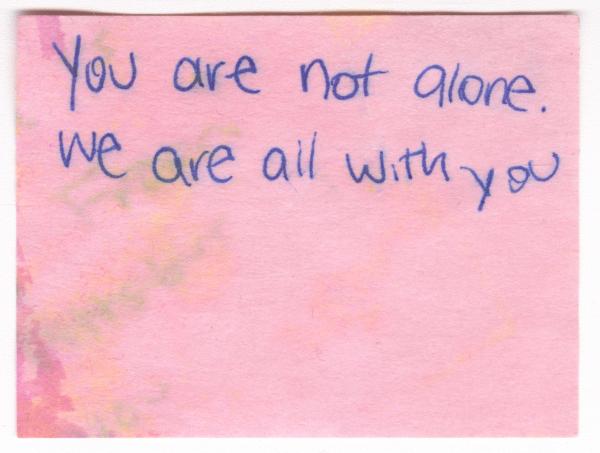 You are not alone.
We are all with you